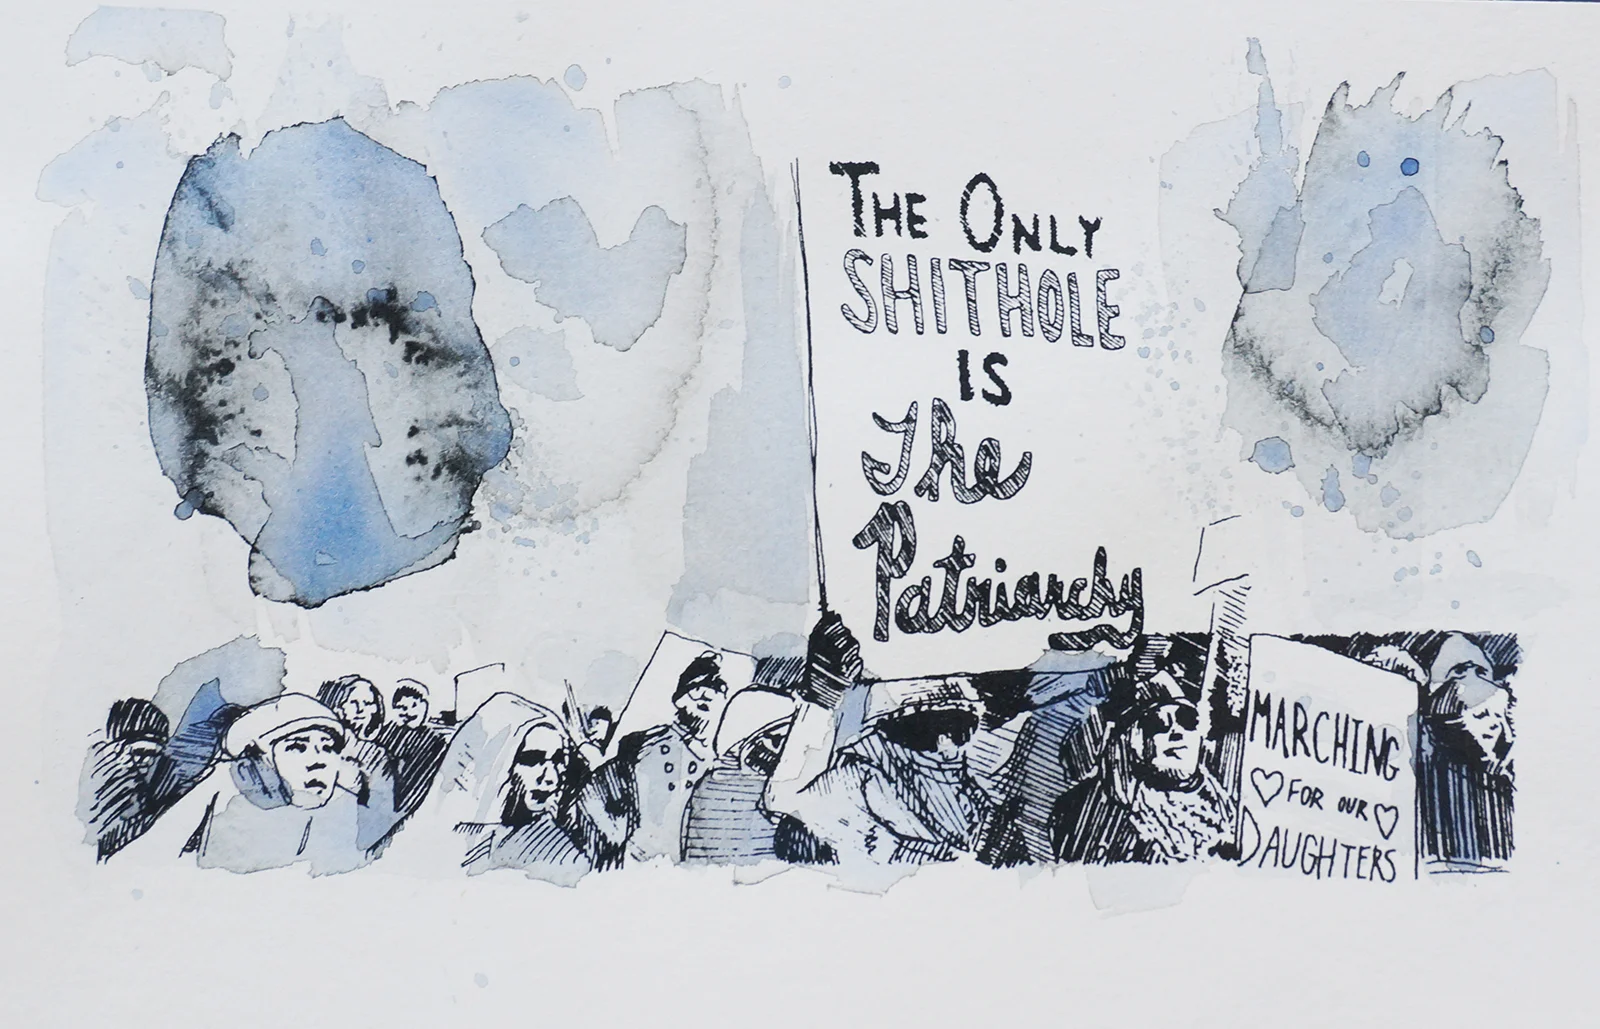 THE ONLY
SHITHOLE
IS
The
Patriarchy
MARCHING
♡ FOR OUR ♡
DAUGHTERS